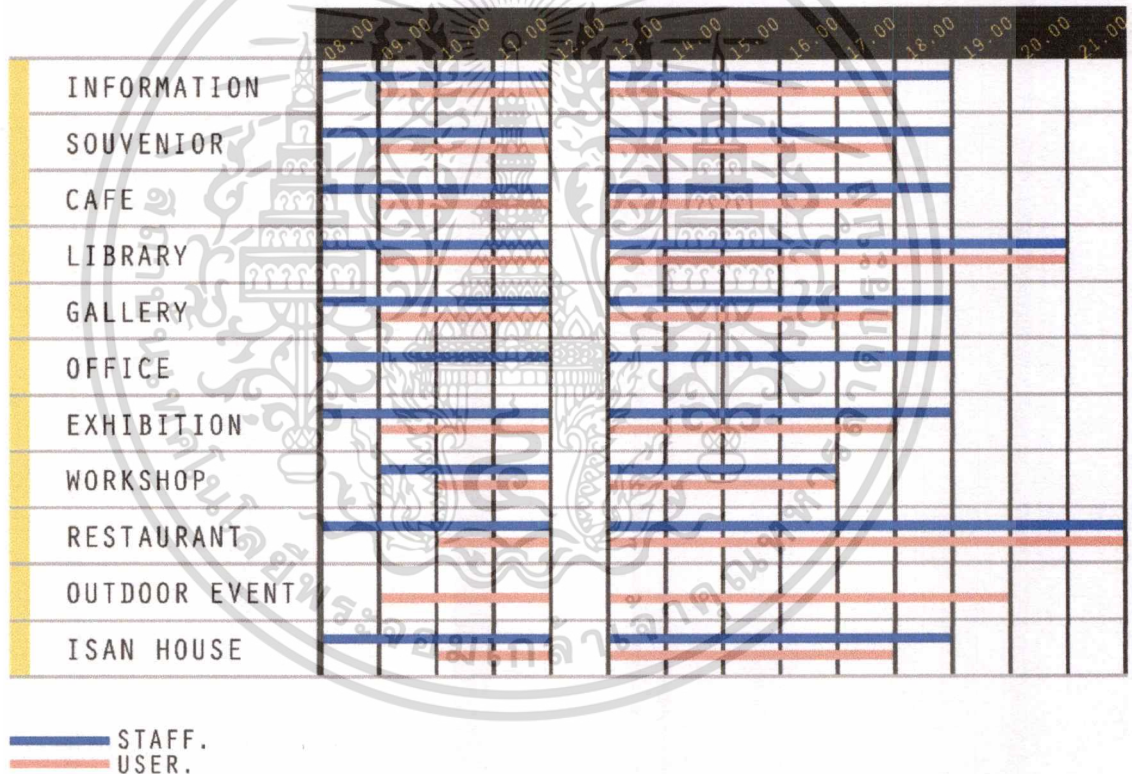 08.00 09.00 10.00 11.00 12.00 13.00 14.00 15.00 16.00 17.00 18.00 19.00 20.00 21.00
INFORMATION
SOUVENIOR
CAFE
LIBRARY
GALLERY
OFFICE
EXHIBITION
WORKSHOP
RESTAURANT
OUTDOOR EVENT
ISAN HOUSE
STAFF.
USER.